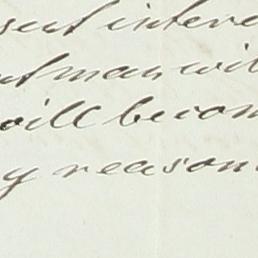 sent intere
t man wil
will becom
y reason